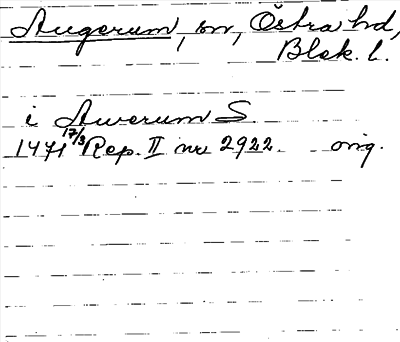 Augerum, sn, Östra hd,
Blek. l.
i Awerum S.
1471 17/3 Rep. II nr 2922. orig.